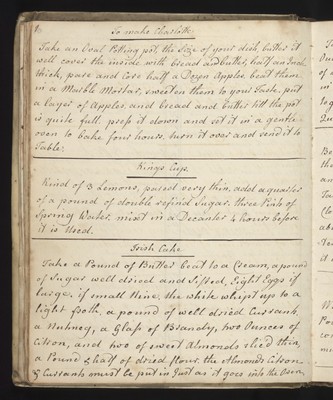 To make Charlotte
Take an Oval Potting pot, the Size of your dish, butter it
well cover the inside with bread and butter, half an Inch
thick, pare and Core half a Dozen Apples, beat them
in a Marble Mortar, sweeten them to your Taste, put
a layer of Apples, and bread and butter till the pot
is quite full, press it down and set it in a gentle
oven to bake four hours, turn it over and send it to
Table.
Kings Cup.
Rind of 3 Lemons, pared very thin, add a quarter
of a pound of double refined Sugar, three Pints of
Spring Water, mixt in a Decanter 4 hours before
it is Used.
Irish Cake
Take a Pound of Butter beat to a Cream, a pound
of Sugar well dried and Sifted, Eight Eggs if
large, if small Nine, the white whipt up to a
light froth, a pound of well dried Currants,
a Nutmeg, a Glass of Brandy, two Ounces of
Citron, and two of sweet Almonds sliced thin,
a Pound & half of dried flour, the Almonds Citron
& Currants must be put in Just as it goes into the Oven.